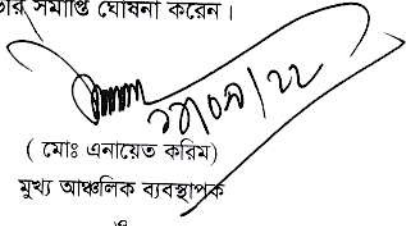 সমাপ্তি ঘোষনা করেন।
( মোঃ এনায়েত করিম)
মুখ্য আঞ্চলিক ব্যবস্থাপক